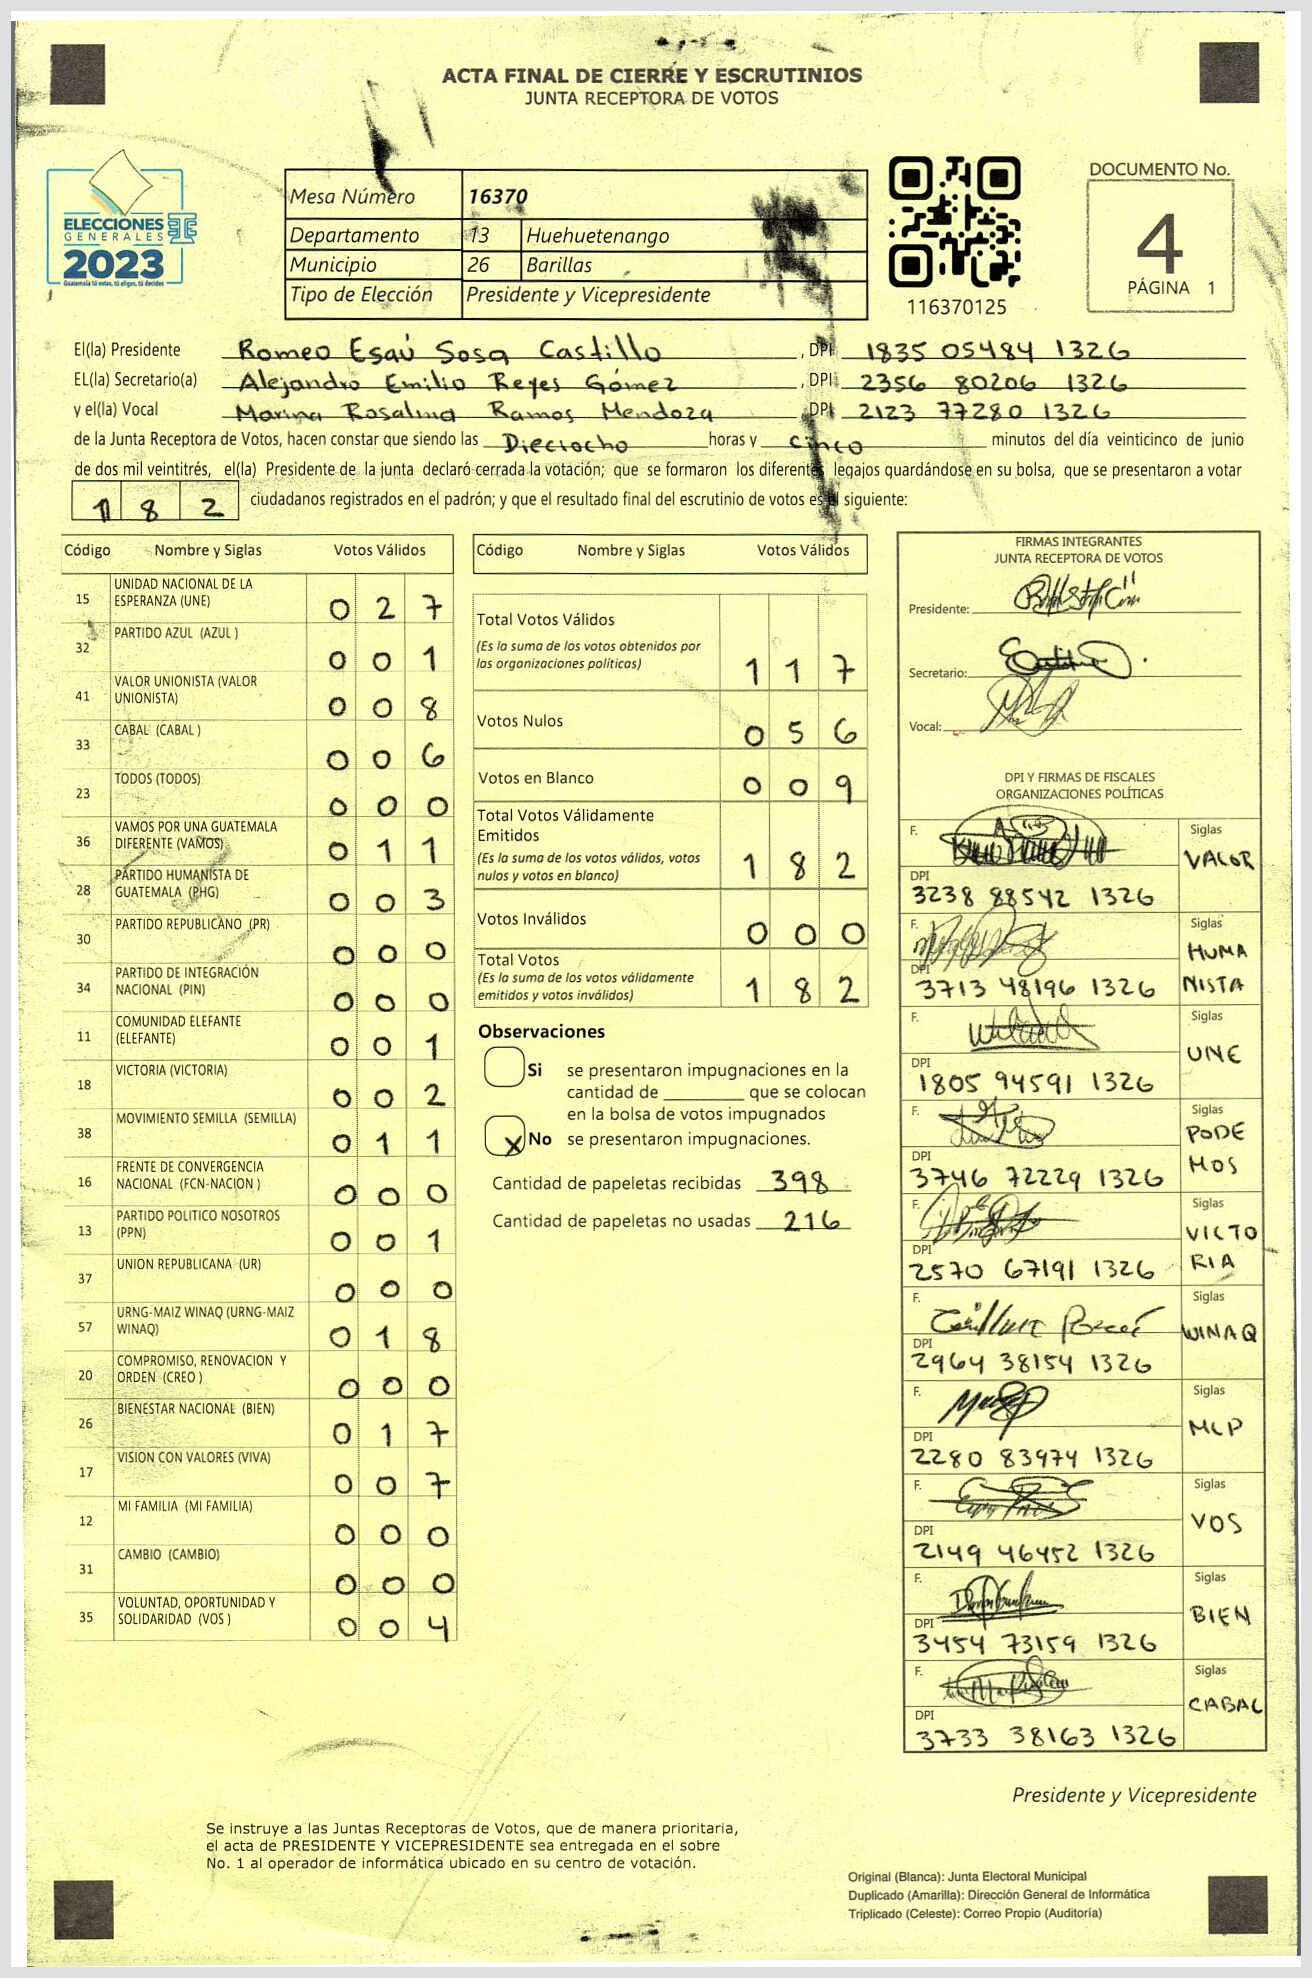 ACTA FINAL DE CIERRE Y ESCRUTINIOS
JUNTA RECEPTORA DE VOTOS
ELECCIONES
GENERALES
2023
Guatemala tú votas, tú eliges, tú decides
Mesa Número 16370
Departamento 13 Huehuetenango
Municipio 26 Barillas
Tipo de Elección Presidente y Vicepresidente
116370125
DOCUMENTO No.
4
PÁGINA 1
El(la) Presidente Romeo Esaú Sosa Castillo, DPI 1835 05484 1326
EL(la) Secretario(a) Alejandro Emilio Reyes Gómez, DPI 2356 80206 1326
y el(la) Vocal Marina Rosalina Ramos Mendoza, DPI 2123 77280 1326
de la Junta Receptora de Votos, hacen constar que siendo las Dieciocho horas y cinco minutos del día veinticinco de junio
de dos mil veintitrés, el(la) Presidente de la junta declaró cerrada la votación; que se formaron los diferentes legajos quardándose en su bolsa, que se presentaron a votar
182 ciudadanos registrados en el padrón; y que el resultado final del escrutinio de votos es el siguiente:
Código Nombre y Siglas Votos Válidos
15 UNIDAD NACIONAL DE LA ESPERANZA (UNE) 0 2 7
32 PARTIDO AZUL (AZUL ) 0 0 1
41 VALOR UNIONISTA (VALOR UNIONISTA) 0 0 8
33 CABAL (CABAL ) 0 0 6
23 TODOS (TODOS) 0 0 0
36 VAMOS POR UNA GUATEMALA DIFERENTE (VAMOS) 0 1 1
28 PARTIDO HUMANISTA DE GUATEMALA (PHG) 0 0 3
30 PARTIDO REPUBLICANO (PR) 0 0 0
34 PARTIDO DE INTEGRACIÓN NACIONAL (PIN) 0 0 0
11 COMUNIDAD ELEFANTE (ELEFANTE) 0 0 1
18 VICTORIA (VICTORIA) 0 0 2
38 MOVIMIENTO SEMILLA (SEMILLA) 0 1 1
16 FRENTE DE CONVERGENCIA NACIONAL (FCN-NACION ) 0 0 0
13 PARTIDO POLITICO NOSOTROS (PPN) 0 0 1
37 UNION REPUBLICANA (UR) 0 0 0
57 URNG-MAIZ WINAQ (URNG-MAIZ WINAQ) 0 1 8
20 COMPROMISO, RENOVACION Y ORDEN (CREO ) 0 0 0
26 BIENESTAR NACIONAL (BIEN) 0 1 7
17 VISION CON VALORES (VIVA) 0 0 7
12 MI FAMILIA (MI FAMILIA) 0 0 0
31 CAMBIO (CAMBIO) 0 0 0
35 VOLUNTAD, OPORTUNIDAD Y SOLIDARIDAD (VOS ) 0 0 4
Código Nombre y Siglas Votos Válidos
Total Votos Válidos 1 1 7
(Es la suma de los votos obtenidos por
las organizaciones políticas)
Votos Nulos 0 5 6
Votos en Blanco 0 0 9
Total Votos Válidamente
Emitidos 1 8 2
(Es la suma de los votos válidos, votos
nulos y votos en blanco)
Votos Inválidos 0 0 0
Total Votos 1 8 2
(Es la suma de los votos válidamente
emitidos y votos inválidos)
Observaciones
Si se presentaron impugnaciones en la
cantidad de ________ que se colocan
en la bolsa de votos impugnados
X No se presentaron impugnaciones.
Cantidad de papeletas recibidas 398
Cantidad de papeletas no usadas 216
FIRMAS INTEGRANTES
JUNTA RECEPTORA DE VOTOS
Presidente:
Secretario:
Vocal:
DPI Y FIRMAS DE FISCALES
ORGANIZACIONES POLÍTICAS
F. Siglas VALOR
DPI 3238 88542 1326
F. Siglas HUMANISTA
DPI 3713 48196 1326
F. Siglas UNE
DPI 1805 94591 1326
F. Siglas PODEMOS
DPI 3746 72229 1326
F. Siglas VICTORIA
DPI 2570 67191 1326
F. Siglas WINAQ
DPI 2964 38154 1326
F. Siglas MLP
DPI 2280 83974 1326
F. Siglas VOS
DPI 2149 46452 1326
F. Siglas BIEN
DPI 3454 73159 1326
F. Siglas CABAL
DPI 3733 38163 1326
Presidente y Vicepresidente
Se instruye a las Juntas Receptoras de Votos, que de manera prioritaria,
el acta de PRESIDENTE Y VICEPRESIDENTE sea entregada en el sobre
No. 1 al operador de informática ubicado en su centro de votación.
Original (Blanca): Junta Electoral Municipal
Duplicado (Amarilla): Dirección General de Informática
Triplicado (Celeste): Correo Propio (Auditoría)